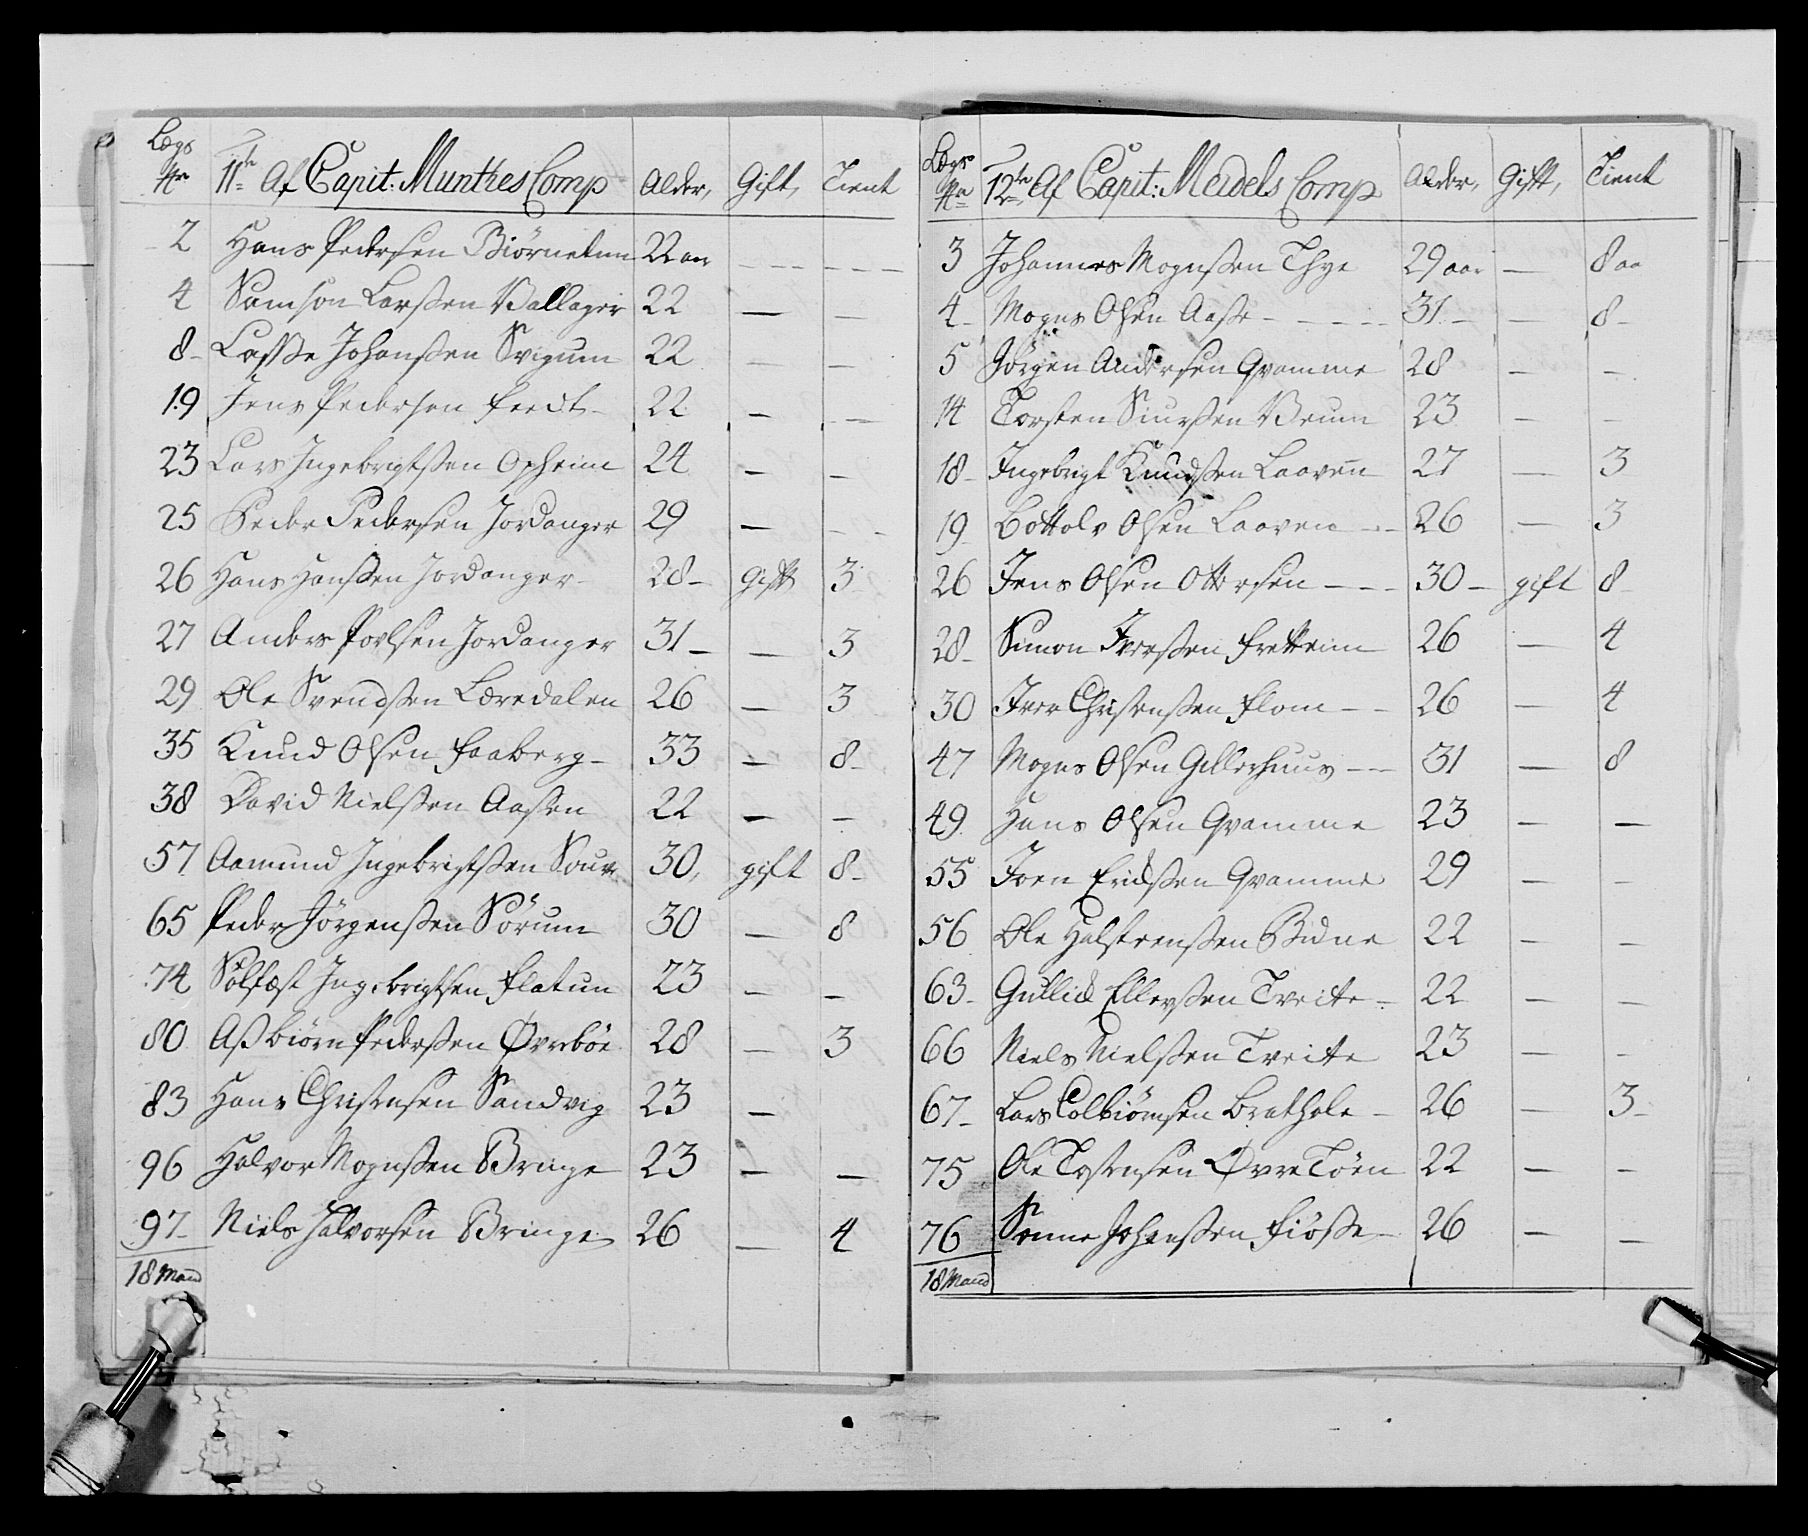 Lægs
No 11te Af Capit: Munthes Comp Alder, Gift, Tient
2 Hans Pedersen Biørnetun 22 aar — —
4 Samson Larsßen Ballager 22 — —
8 Lasse Johansßen Svigum 22 — —
19 Jens Pedersen feedt 22 — —
23 Lars Ingebrigtsßen Opheim 24 — —
25 Peder Pedersen Jordanger 29 — —
26 Hans Hansßen Jordanger 28 gift 3
27 Anders Povlsen Jordanger 31 — 3
29 Ole Svendsßen Læredalen 26 — 3
35 Knud Olsen faaberg 33 — 8
38 David Nielsßen Aasen 22 — —
57 Aamund Ingebrigtsßen 30, gift 8
65 Peder Jörgensßen Sörum 30 — 8
74 Sölfæst Ingebrigtsen flatun 23 — —
80 Aßbiörn Pedersßen Øvreböe 28 — 3
83 Hans Christensen Sandvig 23 —
96 Halvor Mognsßen Bringe 23 — —
97 Niels Halvorsen Bringe 26 — 4
18 Mand
Lægs
No 12te Af Capit: Meidels Comp Alder, Gift, Tient
3 Johannes Mognsßen Thye 29 aar — 8 aa
4 Mogns Olsen Aase 31 — 8
5 Jörgen Andersen Qvamme 28 — —
14 Torsten Siursßen Brum 23 — —
18 Ingebrigt Knudsßen Laaven 27 — 3
19 Bottolv Olsen Laaven 26 — 3
26 Jens Olsen Ottersen 30 gift 8
28 Simon Iversßen fretteim 26 — 4
30 Iver Christensßen flom 26 — 4
47 Mogns Olsen Gillerhuus 31 — 8
49 Hans Olsen Qvamme 23 — —
55 Joen Ericksßen Qvamme 29 — —
56 Ole Halstensßen Bidne 22 — —
63 Gullick Ellevsßen Tveite 22 — —
66 Niels Nielsßen Tveite 23 — —
67 Lars Colbiörnsen Brathole 26 — 3
75 Ole Tostensen Øvre Töen 22 — —
76 Johansßen fiöße 26 — —
18 Mand